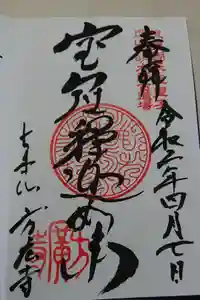 奉拝
令和六年四月七日
宝冠釋迦如来
大本山 方広寺
方廣寺